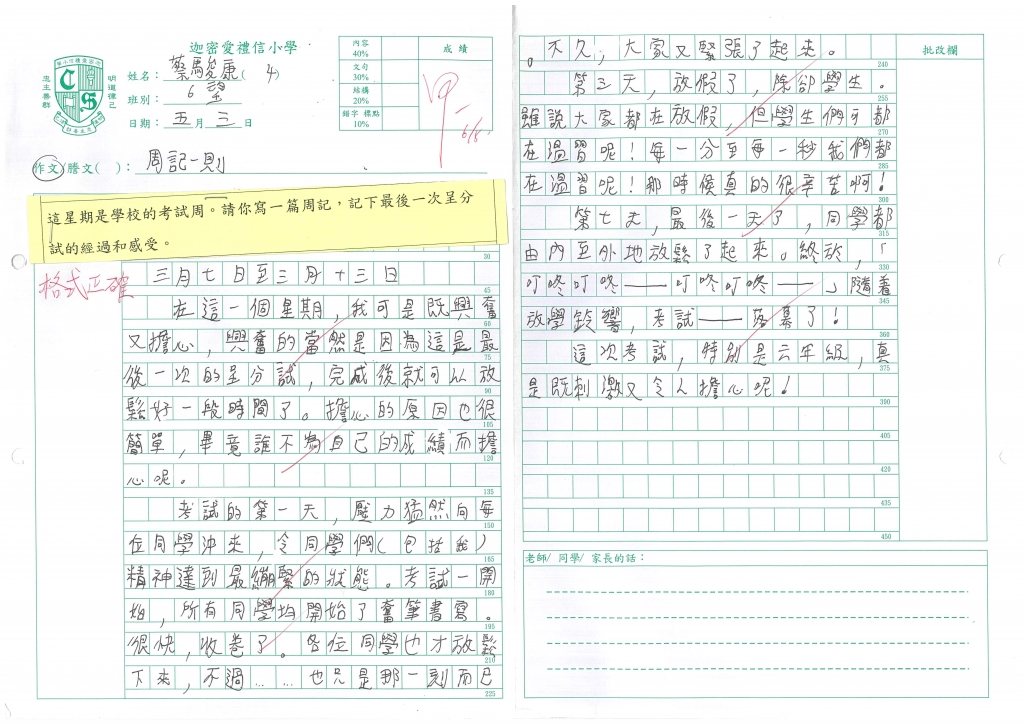 迦密愛禮信小學
姓名：蔡駿康(4)
班別：6望
日期：五月三日
內容 40%
文句 30%
結構 20%
錯字 標點 10%
成績
忠主善群
明道律己
作文/謄文( )：周記一則
這星期是學校的考試周。請你寫一篇周記，記下最後一次呈分
試的經過和感受。
格式正確
30
三月七日至三月十三日
45
在這一個星期，我可是既興奮
60
又擔心，興奮的當然是因為這是最
75
後一次的呈分試，完成後就可以放
90
鬆好一段時間了。擔心的原因也很
105
簡單，畢竟誰不為自己的成績而擔
120
心呢。
135
考試的第一天，壓力猛然向每
150
位同學沖來，令同學們(包括我)
165
精神達到最繃緊的狀態。考試一開
180
始，所有同學均開始了奮筆書寫。
195
很快，收卷了。各位同學也才放鬆
210
下來，不過……也只是那一刻而已
225
。不久，大家又緊張了起來。
批改欄
240
第三天，放假了，除卻學生。
255
雖說大家都在放假，但學生們可都
270
在溫習呢！每一分至每一秒我們都
285
在溫習呢！那時候真的很辛苦啊！
第七天，最後一天了，同學都
315
由內至外地放鬆了起來。終於，「
330
叮咚叮咚——叮咚叮咚——」隨着
345
放學鈴響，考試——落幕了！
360
這次考試，特別是六年級，真
375
是既刺激又令人擔心呢！
390
405
420
435
450
老師/ 同學/ 家長的話：